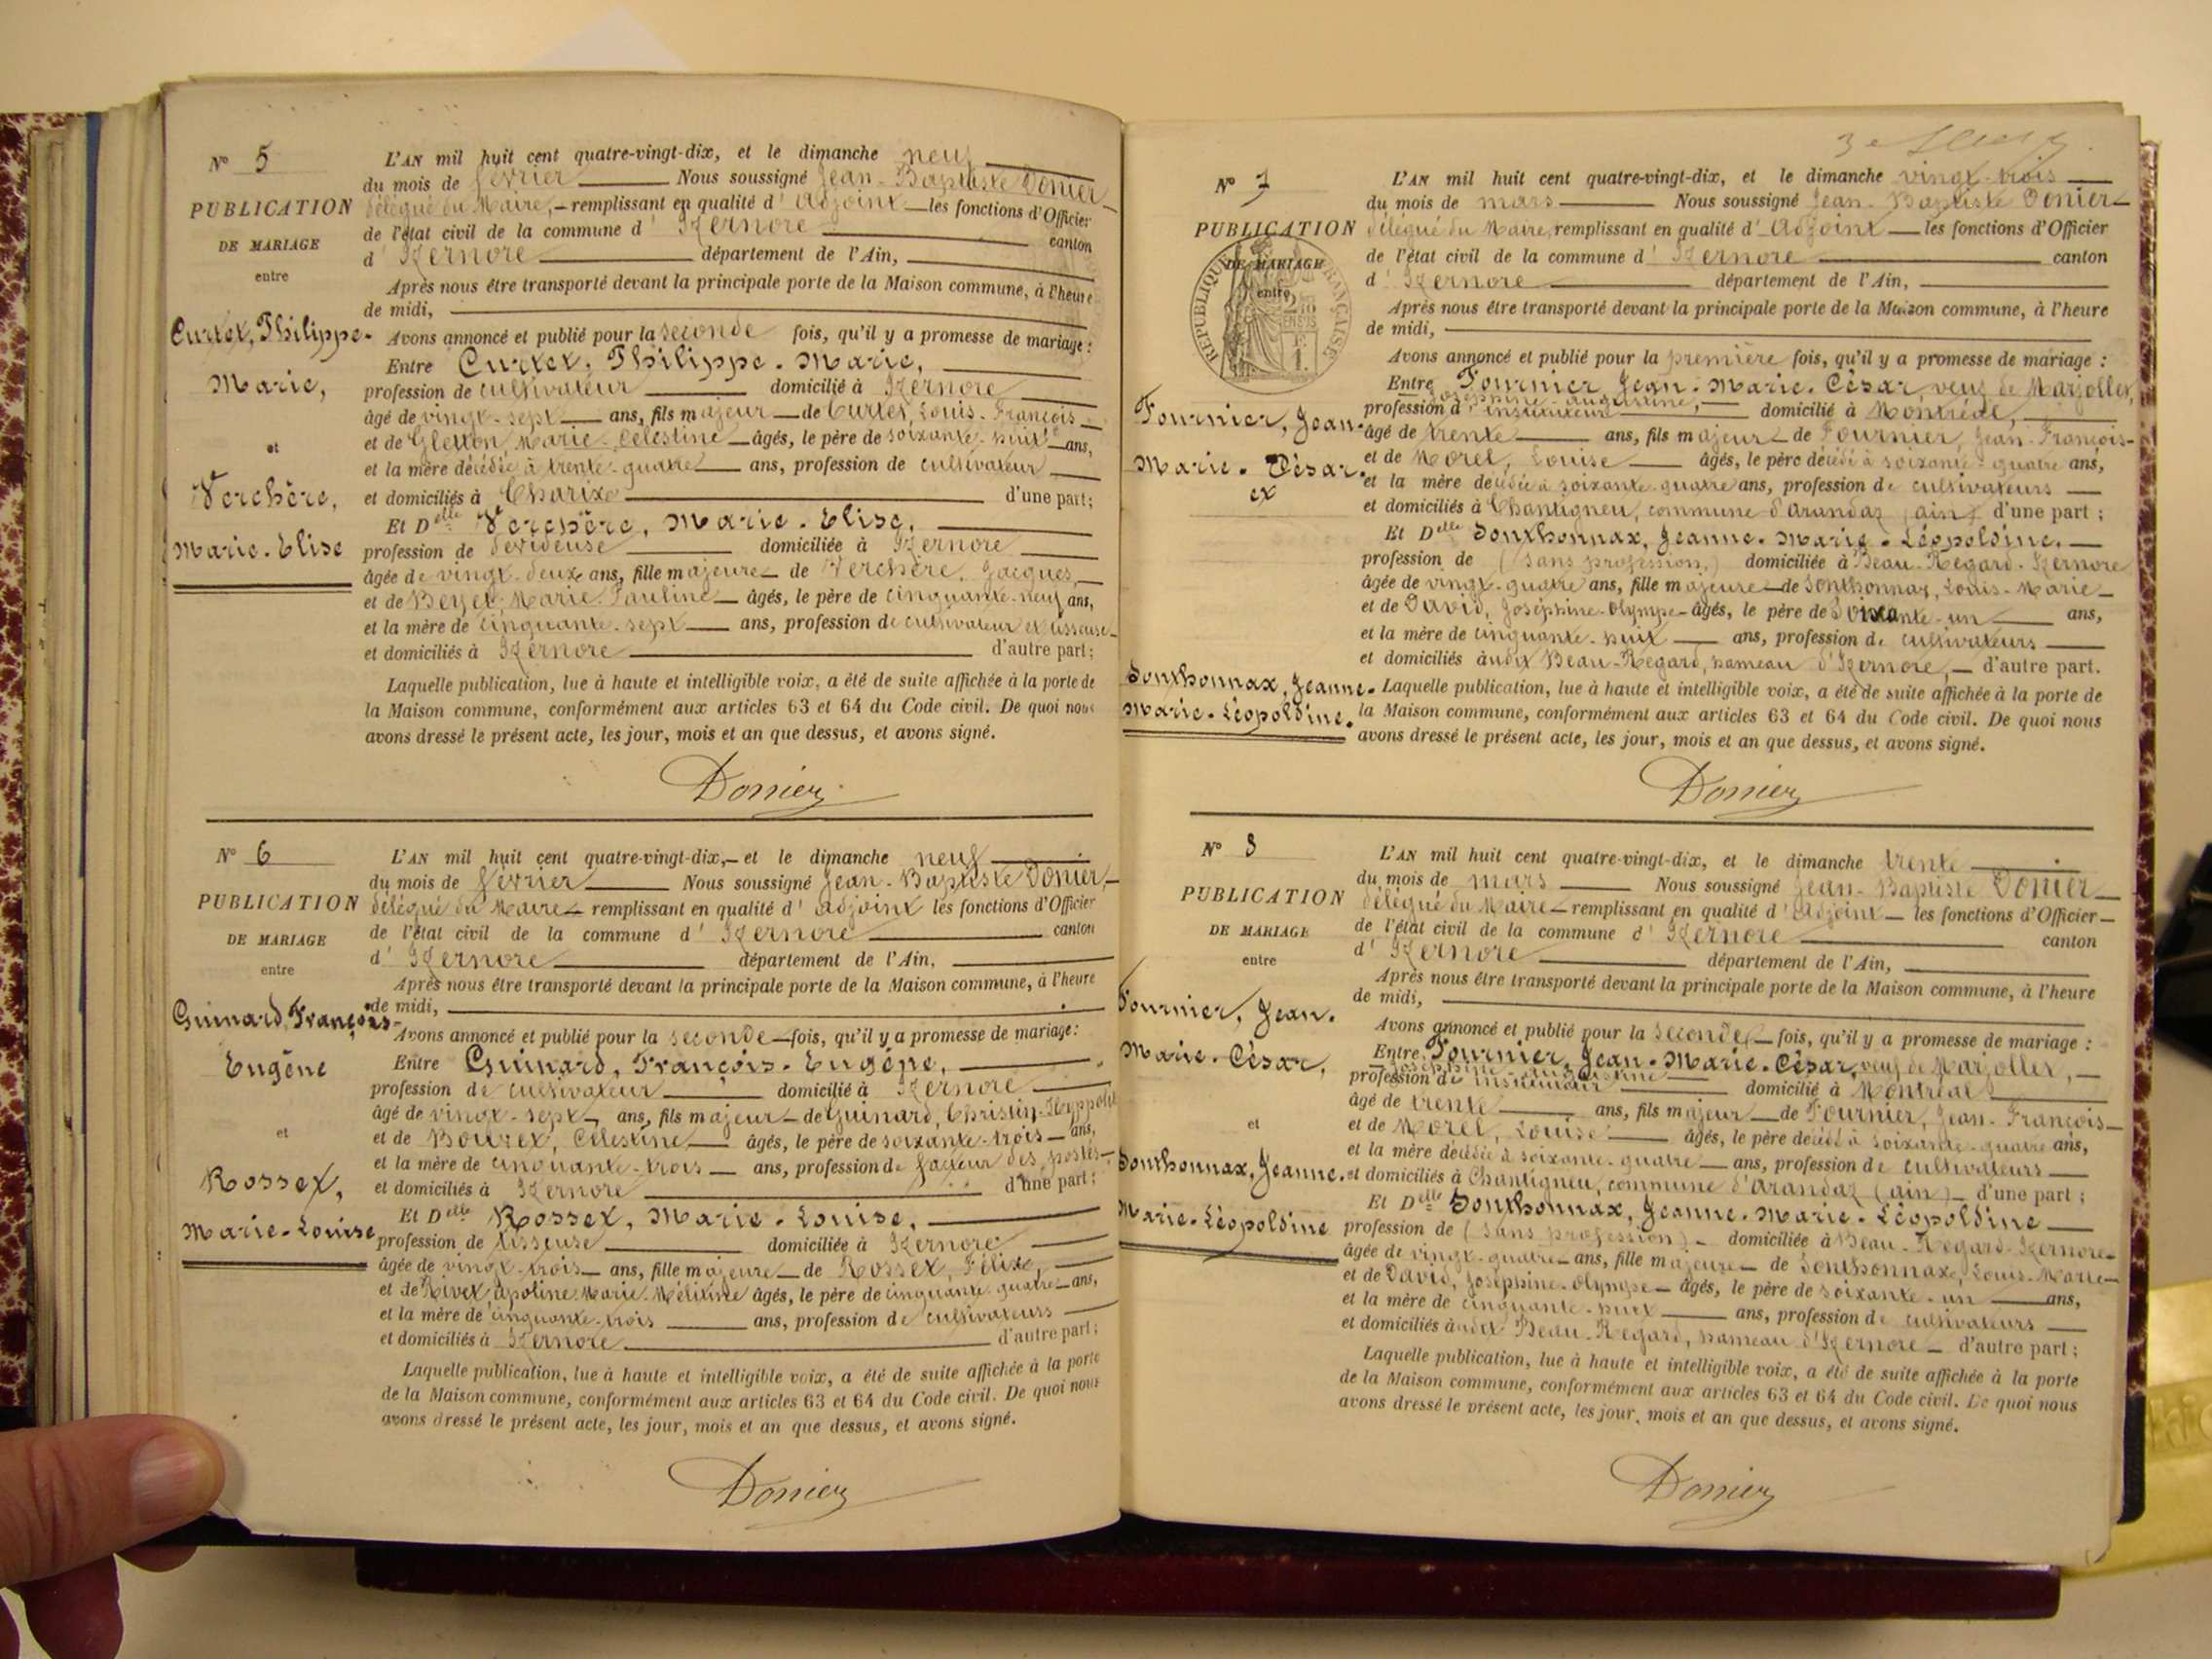 N° 5
PUBLICATION
DE MARIAGE
entre
Curtet, Philippe-
Marie,
et
Verchère,
Marie-Elise
L'AN mil huit cent quatre-vingt-dix, et le dimanche neuf
du mois de février Nous soussigné Jean-Baptiste Donier
délégué du Maire, remplissant en qualité d'Adjoint les fonctions d'Officier
de l'état civil de la commune d'Izernore canton
d'Izernore département de l'Ain,
Après nous être transporté devant la principale porte de la Maison commune, à l'heure
de midi,
Avons annoncé et publié pour la seconde fois, qu'il y a promesse de mariage :
Entre Curtet, Philippe-Marie,
profession de cultivateur domicilié à Izernore
âgé de vingt-sept ans, fils majeur de Curtet, Louis-François
et de Gletton, Marie-Célestine âgés, le père de soixante-huit ans,
et la mère décédée à trente-quatre ans, profession de cultivateur
et domiciliés à Charix d'une part;
Et Delle Verchère, Marie-Elise,
profession de dévideuse domiciliée à Izernore
âgée de vingt-deux ans, fille majeure de Verchère, Jacques,
et de Beyet, Marie-Pauline âgés, le père de cinquante-neuf ans,
et la mère de cinquante-sept ans, profession de cultivateur et tisseuse
et domiciliés à Izernore d'autre part;
Laquelle publication, lue à haute et intelligible voix, a été de suite affichée à la porte de
la Maison commune, conformément aux articles 63 et 64 du Code civil. De quoi nous
avons dressé le présent acte, les jour, mois et an que dessus, et avons signé.
Donier
N° 6
PUBLICATION
DE MARIAGE
entre
Guinard, François-
Eugène
et
Rosset,
Marie-Louise
L'AN mil huit cent quatre-vingt-dix, et le dimanche neuf
du mois de février Nous soussigné Jean-Baptiste Donier,
délégué du Maire remplissant en qualité d'adjoint les fonctions d'Officier
de l'état civil de la commune d'Izernore canton
d'Izernore département de l'Ain,
Après nous être transporté devant la principale porte de la Maison commune, à l'heure
de midi,
Avons annoncé et publié pour la seconde fois, qu'il y a promesse de mariage:
Entre Guinard, François-Eugène,
profession de cultivateur domicilié à Izernore
âgé de vingt-sept ans, fils majeur de Guinard, Christin-Hyppolite
et de Bouret, Célestine âgés, le père de soixante-trois ans,
et la mère de cinquante-trois ans, profession de facteur des postes
et domiciliés à Izernore d'une part;
Et Delle Rosset, Marie-Louise,
profession de tisseuse domiciliée à Izernore
âgée de vingt-trois ans, fille majeure de Rosset, Félix,
et de Rivet, Apoline-Marie âgés, le père de cinquante-quatre ans,
et la mère de cinquante-trois ans, profession de cultivateurs
et domiciliés à Izernore d'autre part;
Laquelle publication, lue à haute et intelligible voix, a été de suite affichée à la porte
de la Maison commune, conformément aux articles 63 et 64 du Code civil. De quoi nous
avons dressé le présent acte, les jour, mois et an que dessus, et avons signé.
Donier
N° 7
PUBLICATION
DE MARIAGE
entre
RÉPUBLIQUE FRANÇAISE
Fournier, Jean-
Marie-César.
et
Sonthonnax, Jeanne-
Marie-Léopoldine.
L'AN mil huit cent quatre-vingt-dix, et le dimanche vingt-trois
du mois de mars Nous soussigné Jean-Baptiste Donier
délégué du Maire, remplissant en qualité d'Adjoint les fonctions d'Officier
de l'état civil de la commune d'Izernore canton
d'Izernore département de l'Ain,
Après nous être transporté devant la principale porte de la Maison commune, à l'heure
de midi,
Avons annoncé et publié pour la première fois, qu'il y a promesse de mariage :
Entre Fournier Jean-Marie-César, veuf de Marjollet,
Joséphine-Augustine,
profession d'instituteur domicilié à Montréal,
âgé de trente ans, fils majeur de Fournier, Jean-François-
et de Morel, Louise âgés, le père décédé à soixante-quatre ans,
et la mère décédée à soixante-quatre ans, profession de cultivateurs
et domiciliés à Chantigneu, commune d'Arandaz (ain) d'une part ;
Et Delle Sonthonnax, Jeanne-Marie-Léopoldine.
profession de (sans profession,) domiciliée à Beau-Regard-Izernore
âgée de vingt-quatre ans, fille majeure de Sonthonnax, Louis-Marie
et de David, Joséphine-Olympe âgés, le père de soixante-un ans,
et la mère de cinquante-huit ans, profession de cultivateurs
et domiciliés audit Beau-Regard, hameau d'Izernore, d'autre part.
Laquelle publication, lue à haute et intelligible voix, a été de suite affichée à la porte de
la Maison commune, conformément aux articles 63 et 64 du Code civil. De quoi nous
avons dressé le présent acte, les jour, mois et an que dessus, et avons signé.
Donier
N° 8
PUBLICATION
DE MARIAGE
entre
Fournier, Jean-
Marie-César,
et
Sonthonnax, Jeanne-
Marie-Léopoldine
L'AN mil huit cent quatre-vingt-dix, et le dimanche trente
du mois de mars Nous soussigné Jean-Baptiste Donier
délégué du Maire remplissant en qualité d'Adjoint les fonctions d'Officier
de l'état civil de la commune d'Izernore canton
d'Izernore département de l'Ain,
Après nous être transporté devant la principale porte de la Maison commune, à l'heure
de midi,
Avons annoncé et publié pour la seconde fois, qu'il y a promesse de mariage :
Entre Fournier, Jean-Marie-César, veuf de Marjollet,
Joséphine-Augustine
profession d'instituteur domicilié à Montréal
âgé de trente ans, fils majeur de Fournier, Jean-François
et de Morel, Louise âgés, le père décédé à soixante-quatre ans,
et la mère décédée à soixante-quatre ans, profession de cultivateurs
et domiciliés à Chantigneu, commune d'Arandaz (ain) d'une part ;
Et Delle Sonthonnax, Jeanne-Marie-Léopoldine
profession de (sans profession) domiciliée à Beau-Regard-Izernore
âgée de vingt-quatre ans, fille majeure de Sonthonnax, Louis-Marie
et de David, Joséphine-Olympe âgés, le père de soixante-un ans,
et la mère de cinquante-huit ans, profession de cultivateurs
et domiciliés audit Beau-Regard, hameau d'Izernore d'autre part ;
Laquelle publication, lue à haute et intelligible voix, a été de suite affichée à la porte
de la Maison commune, conformément aux articles 63 et 64 du Code civil. De quoi nous
avons dressé le présent acte, les jour, mois et an que dessus, et avons signé.
Donier